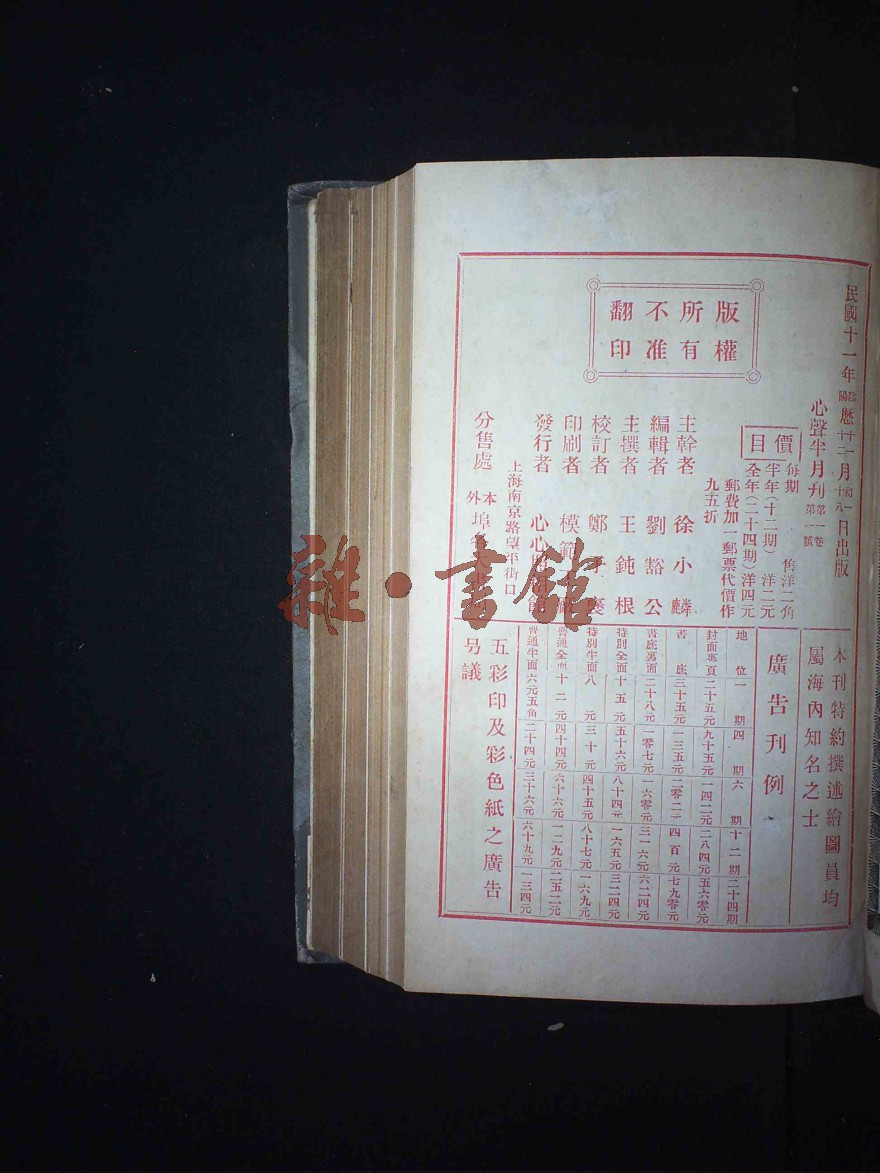 民國十一年陰陽曆十一十二月初一十八日出版
心聲半月刊 第一卷 第一號
價目
每期 售洋二角
半年(十二期) 洋二元
全年(二十四期)洋四元
郵費加一郵票代價作
九五折
版權
所有
不准
翻印
主幹者 徐小麟
編輯者 劉豁公
主撰者 王鈍根
校訂者 鄭
印刷者 模範
發行者 心心
上海南京路望平街口
分售處 本外埠
本刊特約撰述繪圖員均
屬海內知名之士
廣告刊例
地位 一期 四期 六期 十二期 二十四期
封面裏頁 二十五元 九十五元 一四二元 二八四元 五六零元
書底 三十五元 一三五元 二零二元 四百元 七九零元
書底裏面 二十八元 一零七元 一六零元 三一六元 六二四元
特別全面 十五元 五十六元 八十四元 一六五元 三二四元
特別半面 八元 三十元 四十五元 八十七元 一六九元
普通全面 十二元 四十四元 六十六元 一二九元 二五二元
普通半面 六元五角 二十四元 三十六元 六十九元 一三四元
五彩印及彩色紙之廣告
另議
雜·書館